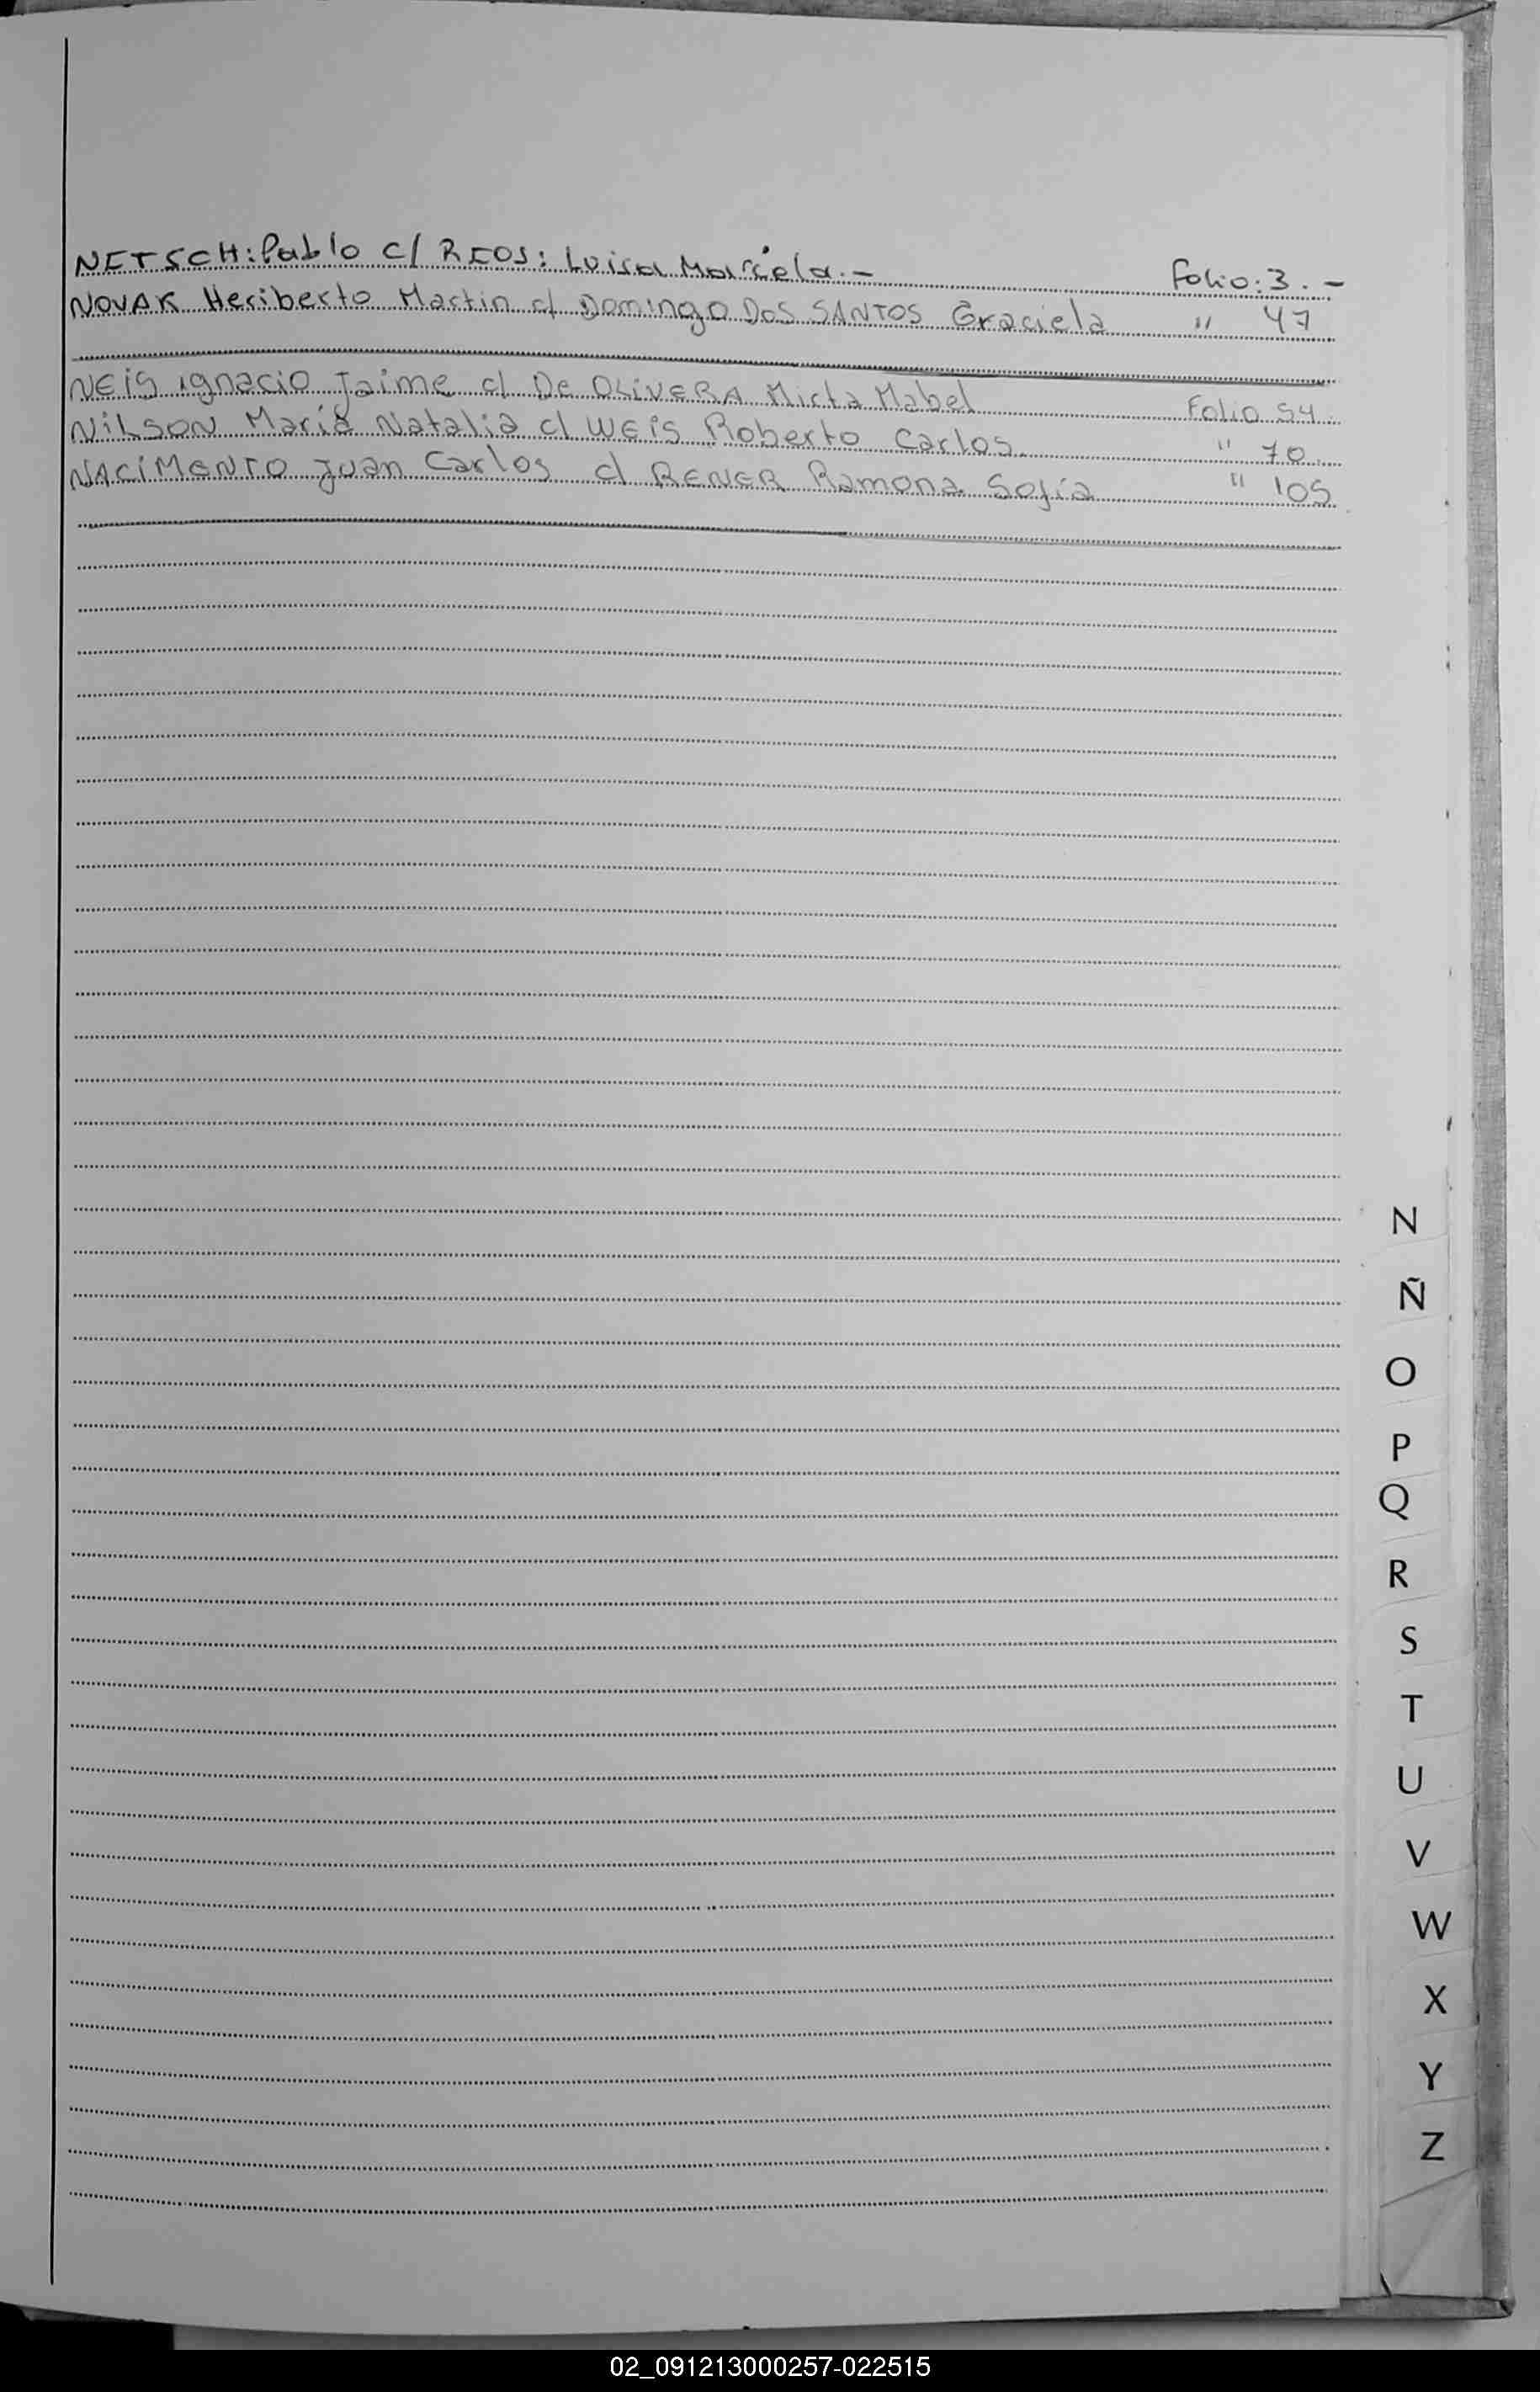 NETSCH: Pablo c/ RIOS: Luisa Marcela.- Folio: 3.-
NOVAK Heriberto Martin c/ Domingo DOS SANTOS Graciela " 47
NEIS ignacio Jaime c/ De OLIVERA Mirta Mabel Folio 54.
NILSON María Natalia c/ WEIS Roberto Carlos " 70.
NACIMENTO Juan Carlos c/ RENER Ramona Sofía " 105
N
Ñ
O
P
Q
R
S
T
U
V
W
X
Y
Z
02_091213000257-022515